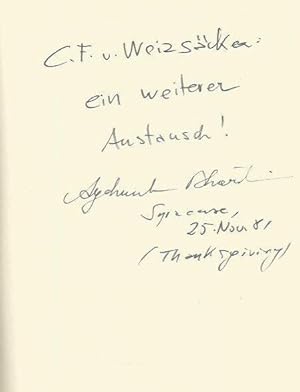 C.F. v. Weizsäcker:
ein weiterer
Austausch!
Syracuse,
25. Nov. 81
(Thanksgiving)